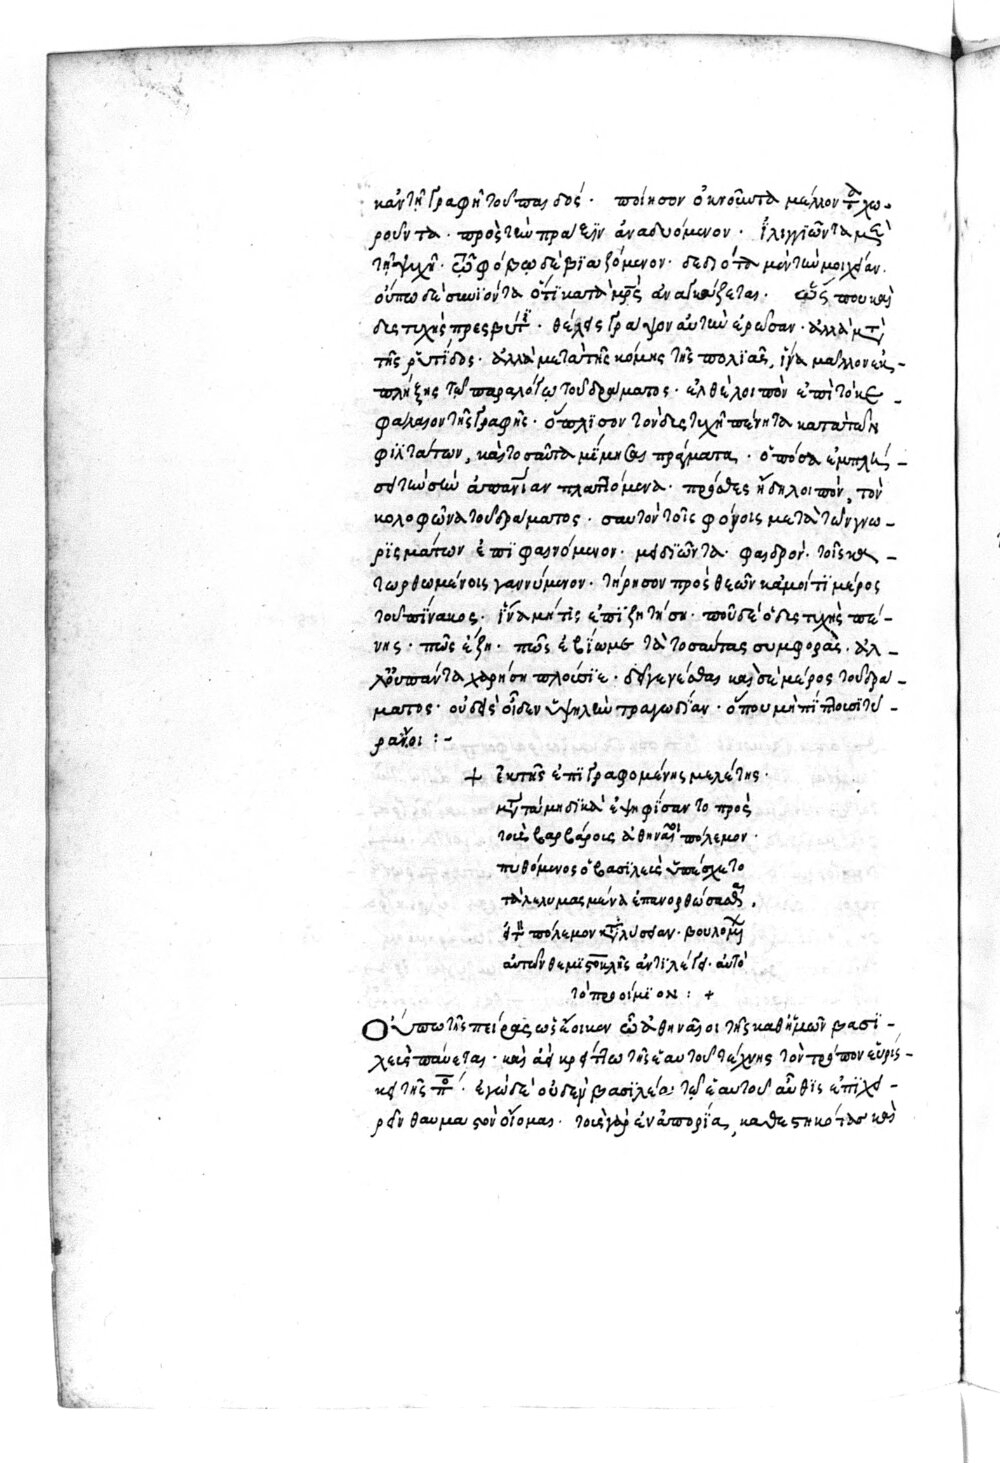 κἀν τῇ γραφῇ τοῦ παιδός · ποίησον ὀκνοῦντα μέλλοντα χω-
ροῦντα · πρὸς τὴν πρᾶξιν ἀναδυόμενον · ἰλιγγιῶντα μὲν
τῇ ψυχῇ · τῷ φόβῳ δὲ βιαζόμενον · δεδιότα μὲν τὴν μοιχείαν
οὔπω δὲ συνιόντα ὅτι κατὰ μητρὸς ἀναγκάζεται · που καὶ
δυστυχὴς πρεσβύτης · θέλεις γράψον αὐτὴν ἐρῶσαν · ἀλλὰ μετὰ
τῆς ῥυτίδος · ἀλλὰ μετὰ τῆς κόμης τῆς πολιᾶς, ἵνα μᾶλλον ἐκ-
πλήξῃς τῷ παραλόγῳ τοῦ δράματος · ἐλθὲ λοιπὸν ἐπὶ τὸ κε-
φάλαιον τῆς γραφῆς · ὅπλισον τὸν δυστυχῆ πένητα κατὰ τῶν
φιλτάτων, καὶ τοσαῦτα μέμηναι πράγματα, ὁπόσα
πλαττόμενα · πρόσθες ἤδη λοιπὸν, τὸν
κολοφῶνα τοῦ δράματος · σαυτὸν τοῖς φόνοις μετὰ τῶν γνω-
ρισμάτων ἐπιφαινόμενον · μειδιῶντα · φαιδρὸν · τοῖς κα-
τωρθωμένοις γαννύμενον · τήρησον πρὸς θεῶν κἀμοί τι μέρος
τοῦ πίνακος · ἵνα μή τις ἐπιζητήσῃ · ποῦ δὲ ὁ δυστυχὴς πέ-
νης · πῶς ἔζη · πῶς ἐβίωσε τὰ τοσαύτας συμφορὰς · ἀλ-
πάντα χωρήσῃ πλούσιε · διηγεῖσθαι καὶ σὲ μέρος τοῦ δρά-
ματος · οὐδεὶς οἶδεν ὑψηλὴν τραγῳδίαν · ὅπου μὴ πίπτουσι τύ-
ραννοι :-
+ ἐκ τῆς ἐπιγραφομένης μελέτης ·
μετὰ μηδικὰ ἐψηφίσαντο πρὸς
τοὺς βαρβάρους ἀθηναῖοι πόλεμον ·
πυθόμενος ὁ βασιλεὺς ὑπέσχετο
τὰ λελυμασμένα ἐπανορθώσασθαι,
εἰ τὸν πόλεμον καταλύσειαν · βουλομένων
αὐτῶν θεμιστοκλῆς ἀντιλέγει · αὐτὸ
τὸ προοίμιον : +
Οὔπω τῆς πείρας ὡς ἔοικεν ὦ ἀθηναῖοι τῆς καθ' ἡμῶν βασι-
λεὺς παύεται · καὶ ἀεὶ κρείττω τῆς ἑαυτοῦ τέχνης τὸν τρόπον εὑρίσ-
κει τῆς πόλεως · ἐγὼ δὲ οὐδὲν βασιλέα τῷ ἑαυτοῦ αὖθις ἐπιχει-
ρεῖν θαυμαστὸν οἴομαι · τοὺς γὰρ ἐν ἀπορίᾳ, καθεστηκότας καὶ